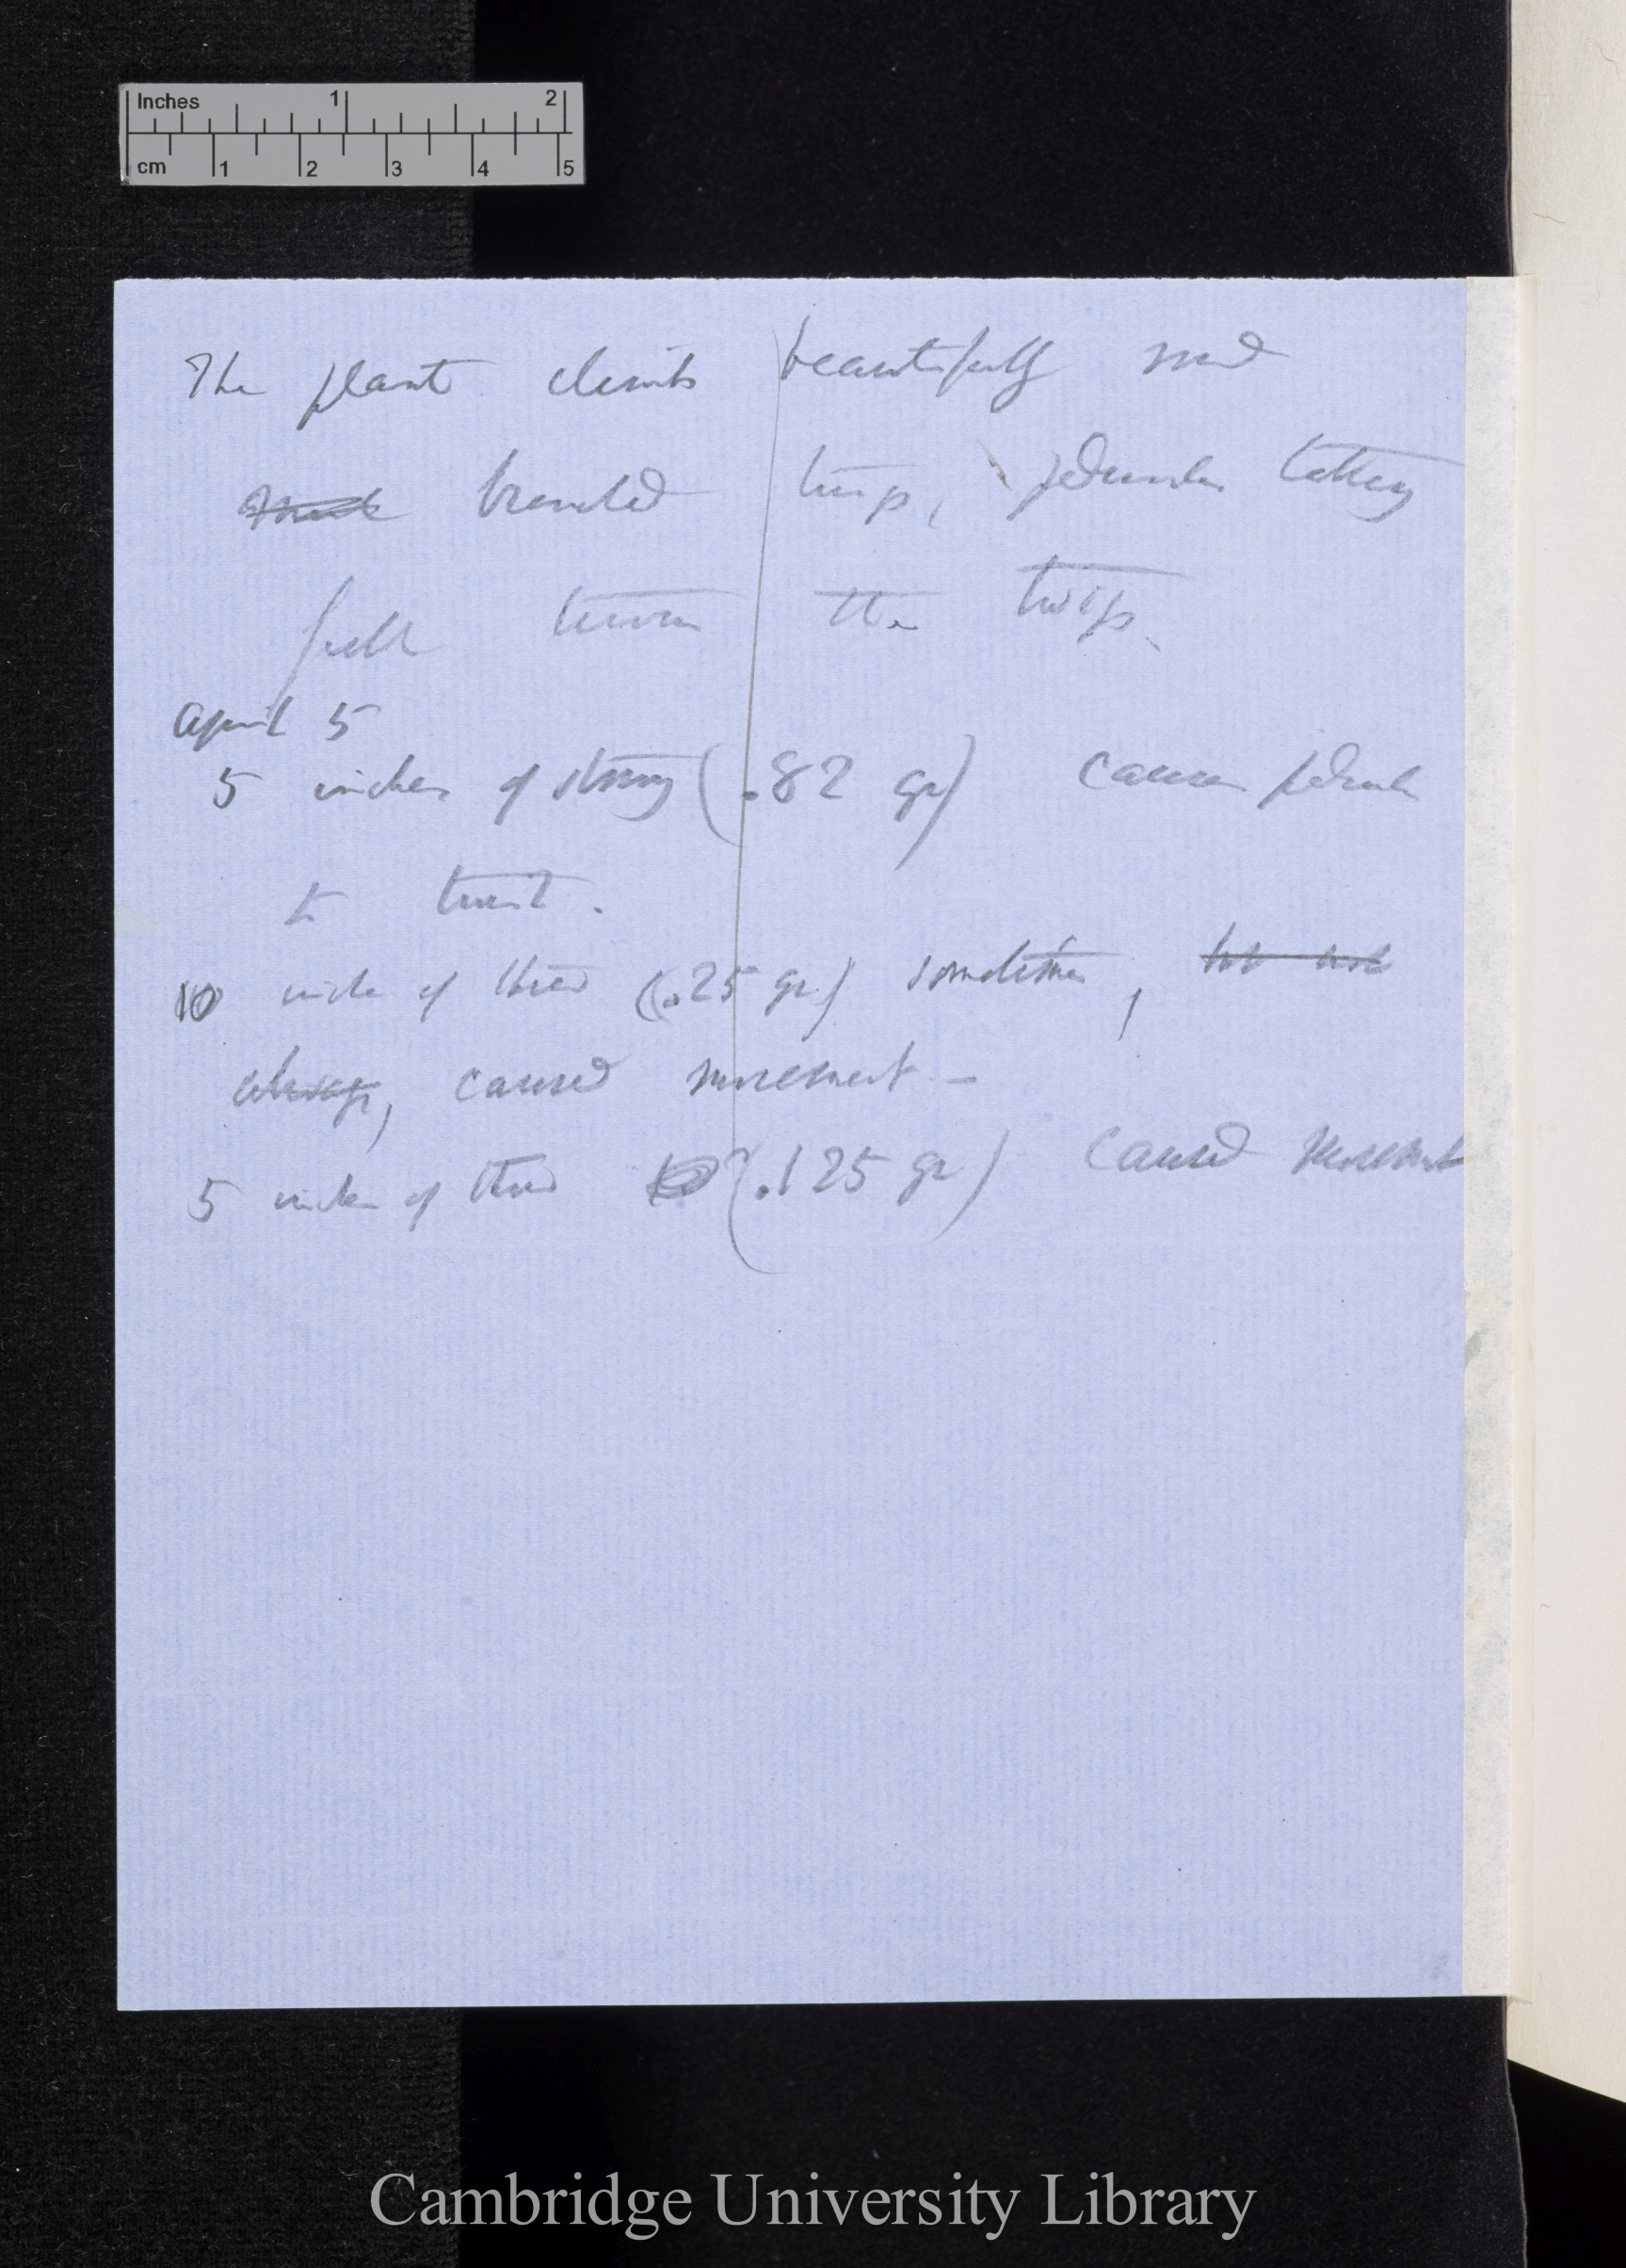 Inches 1 2
cm 1 2 3 4 5
The plant climbs beautifully
branched twigs, peduncles taking
full turn the twigs.
April 5
5 inches of string (.82 gr) causes peduncle
to twist.
10 inches of thread (.25 gr) sometimes, but not
always, caused movement —
5 inches of thread (.125 gr) caused movement
Cambridge University Library